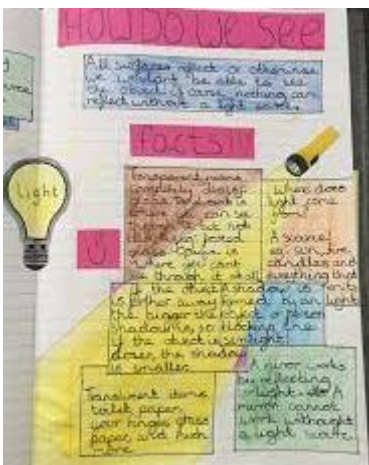 HOW DO WE SEE
All surfaces reflect or otherwise
we wouldn't be able to see
the object of corse nothing can
reflect without a light
facts!!!
Light
Transparent means
completely clear eg
glass. Translucent is
where you can see
through it but not
clearly eg
glass. Opaque is
where you cant
see through it at all
Where does
light come
from?
A source!
eg: sun, fire
candles and
everything that
light
If the object
is further away
the bigger the
shadow is, so
if the object is
closer, the shadow
is smaller.
A shadow is
formed by an
object or person
blocking the
sunlight
Translucent items
toilet paper
your finger, glass
paper and much
more
A mirror works
be reflecting
light. A
mirror cannot
work withought
a light source